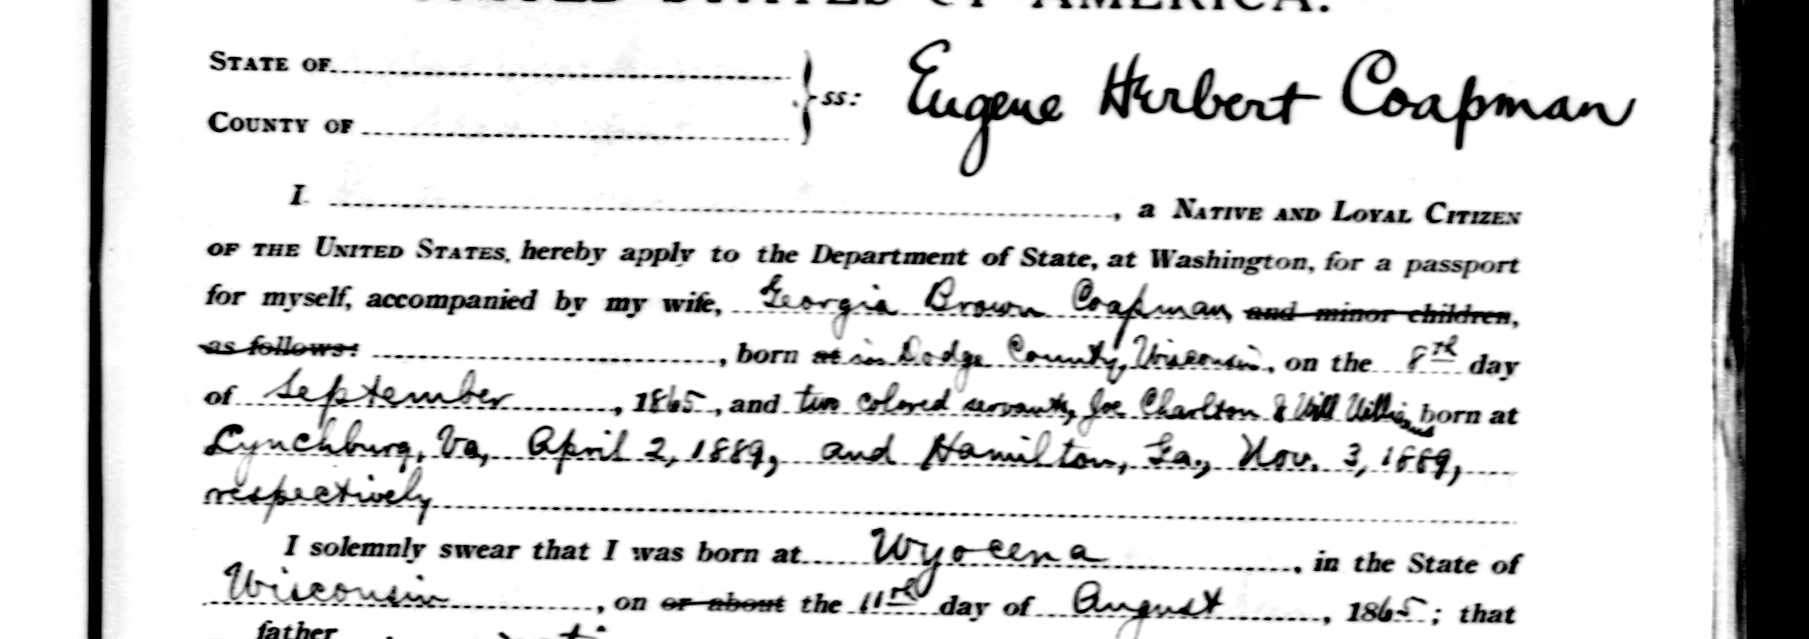 UNITED STATES OF AMERICA.
STATE OF
COUNTY OF
ss: Eugene Herbert Coapman
I , a NATIVE AND LOYAL CITIZEN
OF THE UNITED STATES, hereby apply to the Department of State, at Washington, for a passport
for myself, accompanied by my wife, Georgia Brown Coapman, and minor children,
as follows: , born at in Dodge County, Wisconsin, on the 8th day
of September , 1865, and two colored servants, Joe Charlton & Will Williams born at
Lynchburg, Va, April 2, 1889, and Hamilton, Ga., Nov. 3, 1889,
respectively
I solemnly swear that I was born at Wyocena , in the State of
Wisconsin , on or about the 11th day of August , 1865; that
father